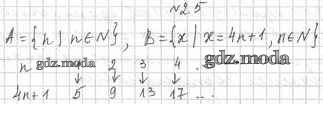 N25
A = {n | n ∈ N}, B = {x | x = 4n+1, n ∈ N}
gdz.moda
n gdz.moda 2 3 4 .
↓ ↓ ↓ ↓
4n+1 5 9 13 17 ...